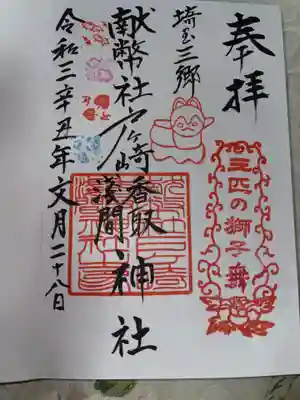 奉拝
三匹の獅子舞
埼玉三郷
献幣社戸ヶ崎香取
淺間神社
令和三辛丑年文月二十八日